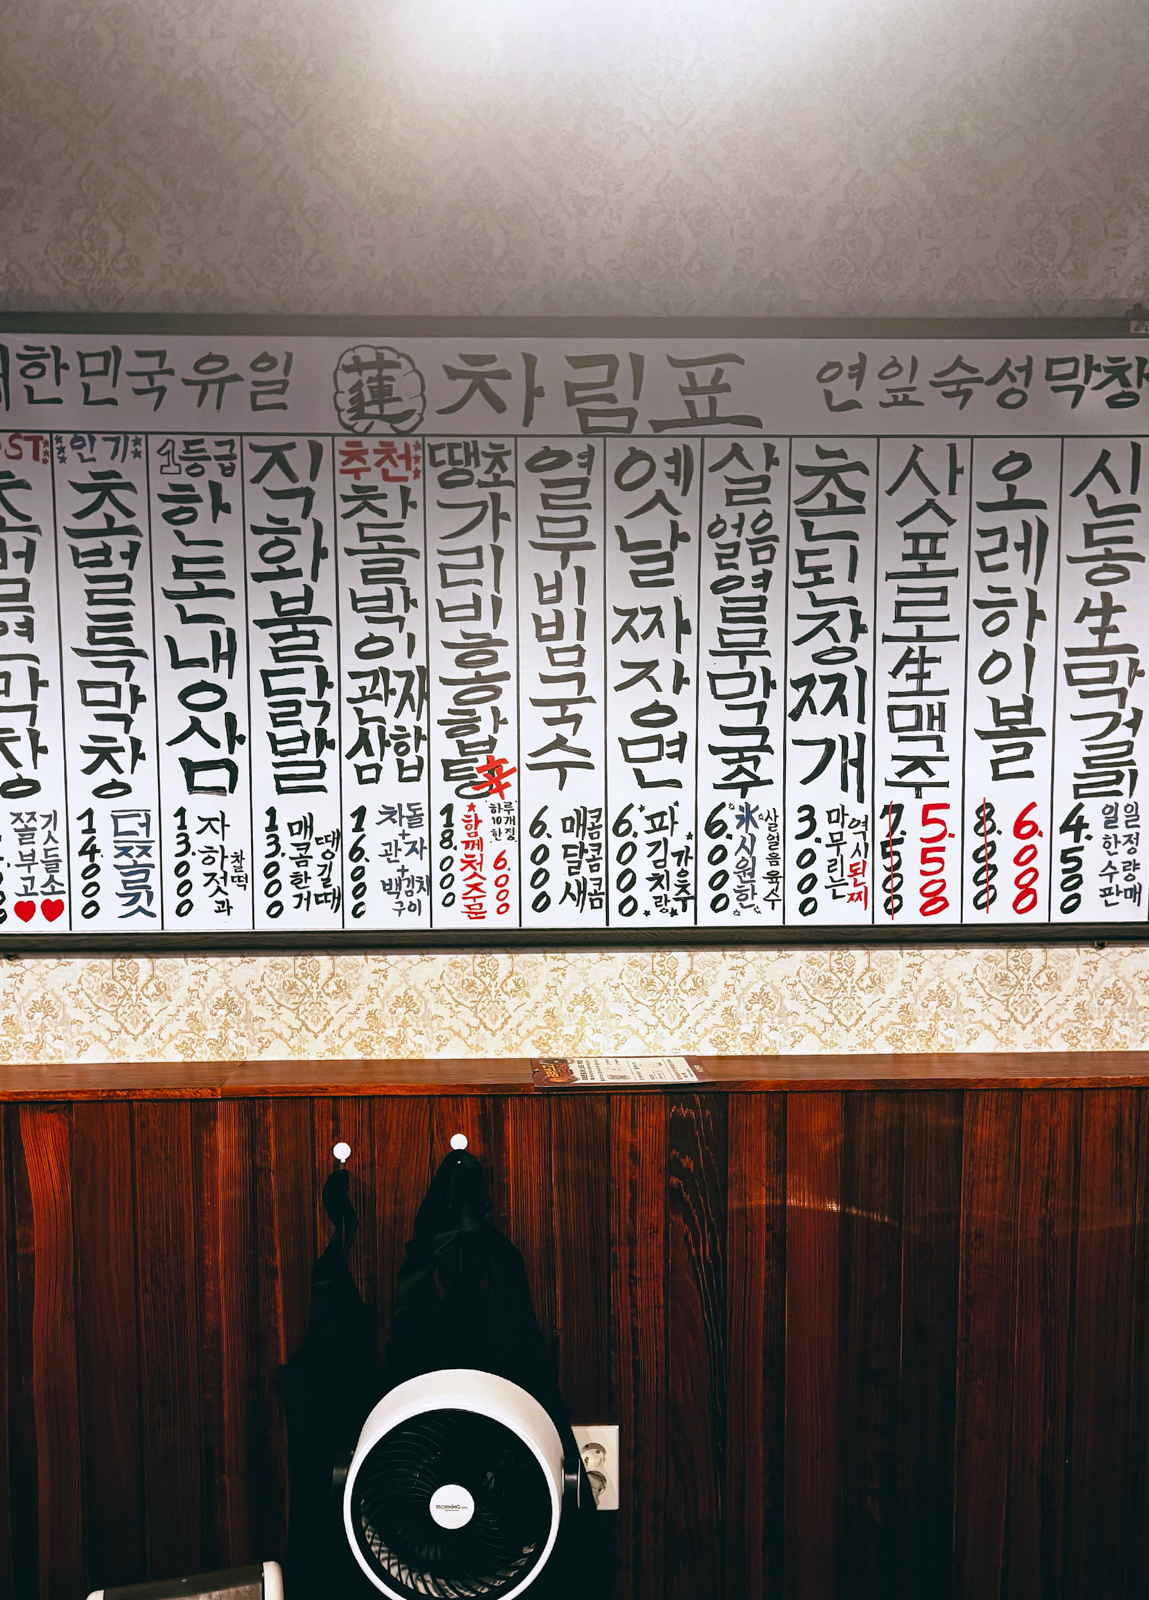 대한민국유일 蓮 차림표 연잎숙성막창
ST
초벌연막창
쫄부고♥
깃들소♥
인기
초벌특막창
14.000
더쫄깃
1등급
한돈내오삼
13.000
자하젓과
찰떡
직화불닭발
13.000
매콤한거
땡길때
추천
찹돌박이관자삼합
16.000
차돌+관자+백김치구이
땡초가리비홍합탕
18.000
함께첫주문
하루10개한정
6.000
열무비빔국수
6.000
매콤달콤새콤
옛날짜장면
6.000
파김치랑
가유추
살얼음열무막국수
6.000
氷시원한
살얼음육수
초된장찌개
3.000
마무리는
역시된찌
삿포로生맥주
7.500
5.500
오레하이볼
8.000
6.000
신동生막걸리
4.500
일일한정수량판매
MORNING